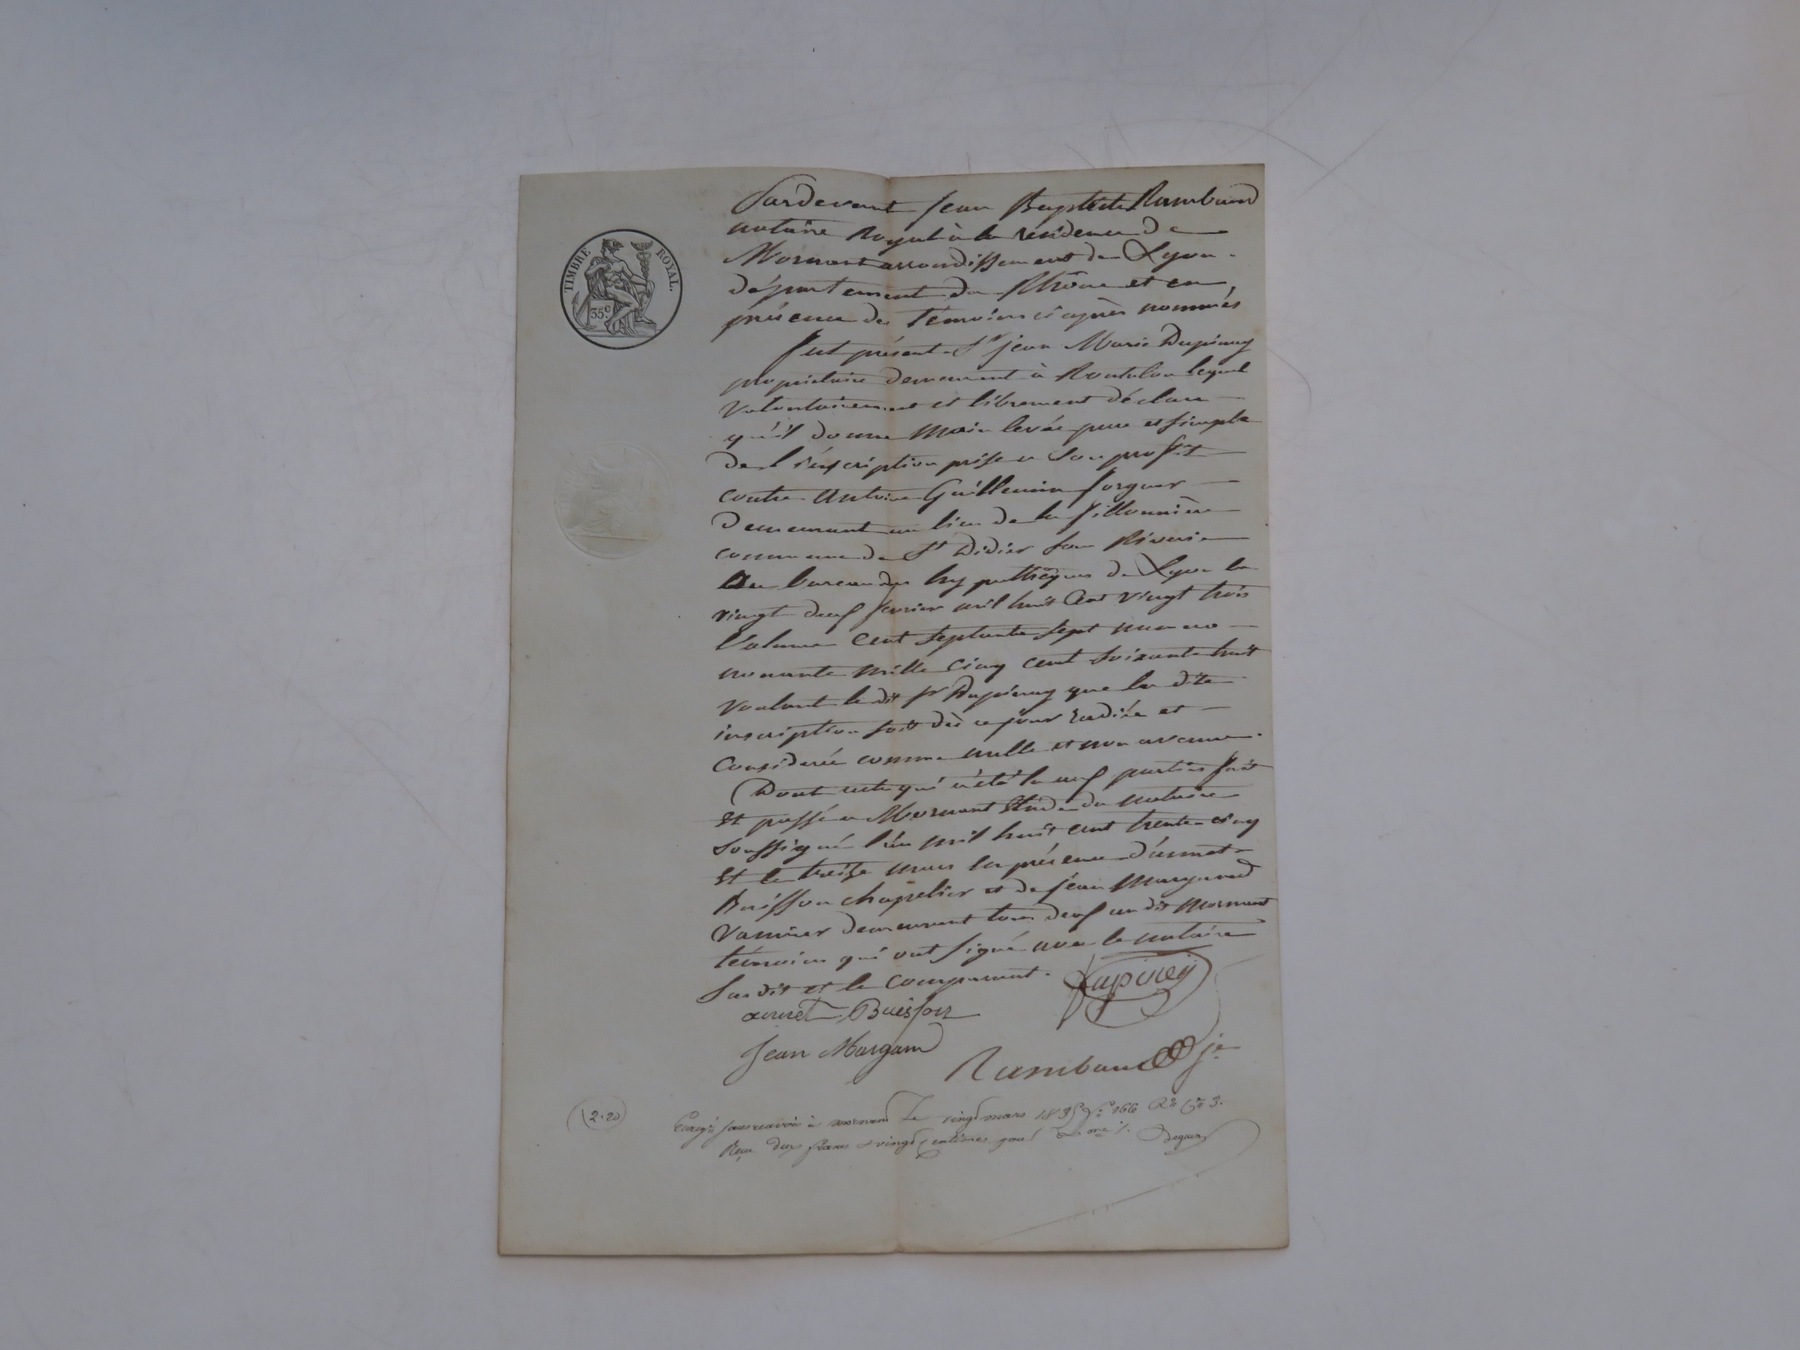 TIMBRE ROYAL.
35 c.
Pardevant Jean Baptiste Rambaud
notaire Royal à la résidence de
Mornant arrondissement de Lyon
département du Rhône et en
présence des témoins ci après nommés
fut présent Sr jean Marie Dupiney
propriétaire demeurant à Rontalon lequel
volontairement et librement déclare
qu'il donne main levée pure et simple
de l'inscription prise a son profit
contre Antoine Guillermin forgeur
demeurant au lieu de la
commune de St Didier sou Riverie
Au bureau des hypothèques de Lyon le
vingt deux fevrier mil huit Cent vingt trois
Volume cent septante sept numero
nonante mille cinq cent soixante huit
voulant le dit Sr Dupiney que la dite
inscription soit dès ce jour radiée et
considerée comme nulle et non avenue.
Dont acte qui a été lu aux parties fait
Et passé a Mornant Etude du notaire
soussigné l'an mil huit cent trente cinq
Et le treize mars en présence d'aimet
Buisson chapelier et de jean Margarond
vannier demeurant tous deux au dit Mornant
témoins qui ont signé avec le notaire
susdit et le comparant.
Dupiney
aimet Buisson
Jean Margaron
Rambaud je
2.20
Enregé sans renvoi à mornant le vingt mars 1835 fo 166 Ro Ce 3.
Reçu deux francs vingt centimes pour